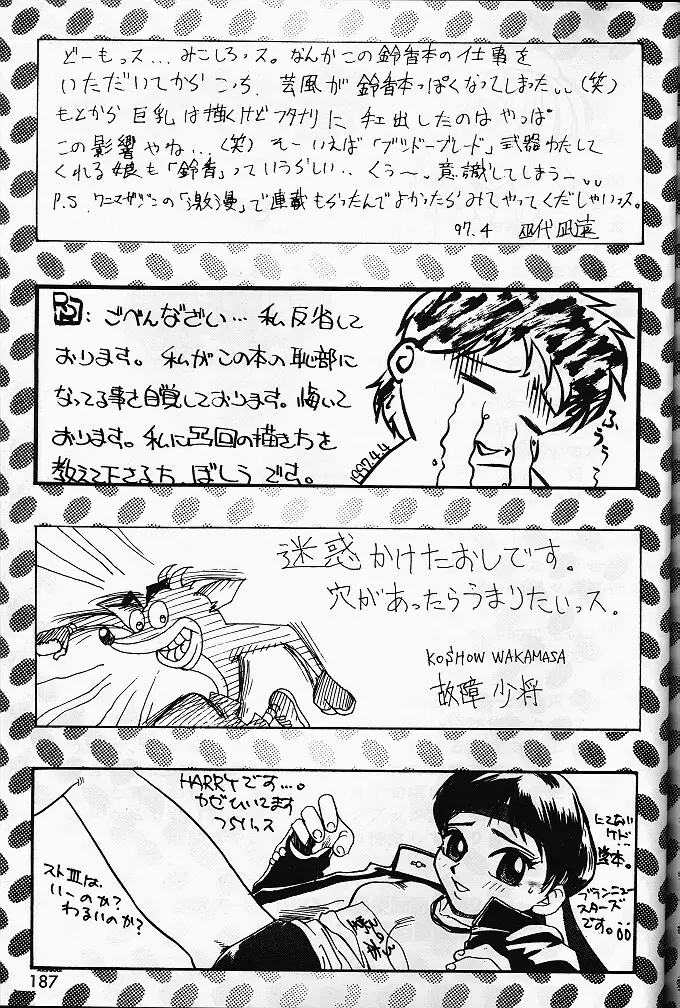 どーもっス...みこしろっス。なんかこの鈴香本の仕事を
いただいてからこっち、芸風が鈴香本っぽくなってしまった、、(笑)
もとから巨乳は描くけどフタナリに手出したのはやっぱ
この影響やね...(笑) そーいえば「ブシドーブレード」武器わたして
くれる娘も「鈴香」っていうらしい.. くぅ〜、意識してしまうー、、
P.S ワニマガジンの「激漫」で連載もらったんでよかったらみてやってくだしゃいっス。
97.4
: ごべんなざい... 私反省して
おります。私がこの本の恥部に
なってる事を自覚しております。悔いて
おります。私に凸凹の描き方を
教えて下さる方、ぼしうです。
1997.4.4
ふぅぅ〜
迷惑かけたおしです。
穴があったらうまりたいっス。
KOSHOW WAKAMASA
故障少将
HARRYです...。
かぜひいてます
つらいっス
ストIIIは
いーのか?
わるいのか?
にてない
ケド
ブランニュー
スターズ
です。
187